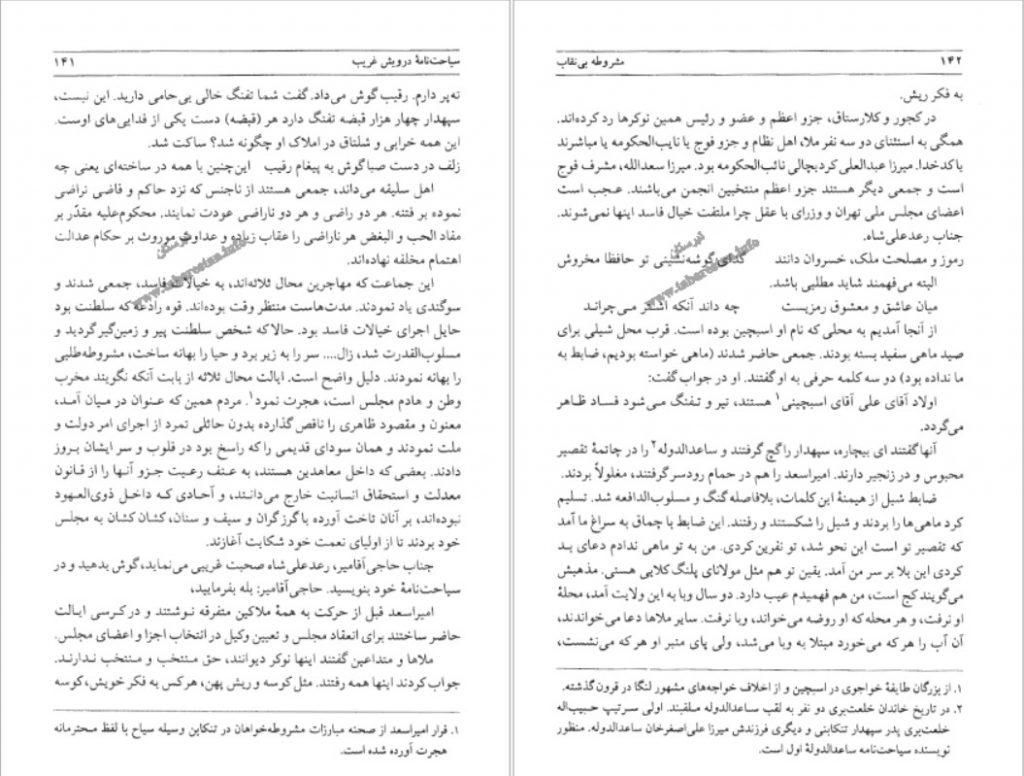 سیاحت‌نامهٔ درویش غریب ۱۴۱
ته‌پر دارم. رقیب گوش می‌داد. گفت شما تفنگ خالی بی‌حامی دارید. این نیست،
سپهدار چهار هزار قبضه تفنگ دارد هر (قبضه) دست یکی از فدایی‌های اوست.
این همه خرابی و شلتاق در املاک او چگونه شد؟ ساکت شد.
زلف در دست صبا گوش به پیغام رقیب این‌چنین با همه در ساخته‌ای یعنی چه
اهل سلیقه می‌داند، جمعی هستند از ناجنس که نزد حاکم و قاضی نراضی
نموده بر فتنه. هر دو راضی و هر دو ناراضی عودت نمایند. محکوم‌علیه مقدّر بر
مفاد الحب و البغض هر ناراضی را عقاب زیاده و عداوت موروث بر حکام عدالت
اهتمام مخلفه نهاده‌اند.
این جماعت که مهاجرین محال ثلاثه‌اند، به خیالات فاسد، جمعی شدند و
سوگندی یاد نمودند. مدت‌هاست منتظر وقت بوده‌اند. قوه رادعه که سلطنت بود
حایل اجرای خیالات فاسد بود. حالا که شخص سلطنت پیر و زمین‌گیر گردید و
مسلوب‌القدرت شد، زال.... سر را به زیر برد و حیا را بهانه ساخت، مشروطه‌طلبی
را بهانه نمودند. دلیل واضح است. ایالت محال ثلاثه از بابت آنکه نگویند مخرب
وطن و هادم مجلس است، هجرت نمود۱. مردم همین که عنوان در میان آمد،
معنون و مقصود ظاهری را ناقص گذارده بدون حائلی تمرد از اجرای امر دولت و
ملت نمودند و همان سودای قدیمی را که راسخ بود در قلوب و سر ایشان بروز
دادند. بعضی که داخل معاهدین هستند، به عنف رعیت جزو آنها را از قانون
معدلت و استحقاق انسانیت خارج می‌دانند، و آحادی که داخل ذوی‌العهود
نبوده‌اند، بر آنان تاخت آورده با گرز گران و سیف و سنان، کشان کشان به مجلس
خود بردند تا از اولیای نعمت خود شکایت آغازند.
جناب حاجی‌آقامیر، رعدعلی‌شاه صحبت غریبی می‌نماید، گوش بدهید و در
سیاحت‌نامهٔ خود بنویسید. حاجی‌آقامیر: بله بفرمایید،
امیراسعد قبل از حرکت به همهٔ ملاکین متفرقه نوشتند و در کرسی ایالت
حاضر ساختند برای انعقاد مجلس و تعیین وکیل در انتخاب اجزا و اعضای مجلس.
ملاها و متداعین گفتند اینها نوکر دیوانند، حق منتخب و منتخب ندارند.
جواب کردند اینها همه رفتند. مثل کوسه و ریش پهن، هر کس به فکر خویش، کوسه
۱. قرار امیراسعد از صحنه مبارزات مشروطه‌خواهان در تنکابن وسیله سیاح با لفظ محترمانه
هجرت آورده شده است.
۱۴۲ مشروطه بی‌نقاب
به فکر ریش.
در کجور و کلارستاق، جزو اعظم و عضو و رئیس همین نوکرها رد کرده‌اند.
همگی به استثنای دو سه نفر ملا، اهل نظام و جزو فوج یا نایب‌الحکومه یا مباشرند
یا کدخدا. میرزا عبدالعلی کردیچالی نائب‌الحکومه بود. میرزا سعدالله، مشرف فوج
است و جمعی دیگر هستند جزو اعظم منتخبین انجمن می‌باشند. عجب است
اعضای مجلس ملی تهران و وزرای با عقل چرا ملتفت خیال فاسد اینها نمی‌شوند.
جناب رعدعلی‌شاه.
رموز و مصلحت ملک، خسروان دانند گدای گوشه‌نشینی تو حافظا مخروش
البته می‌فهمند شاید مطلبی باشد.
میان عاشق و معشوق رمزیست چه داند آنکه اشتر می‌چراند
از آنجا آمدیم به محلی که نام او اسبچین بوده است. قرب محل شیلی برای
صید ماهی سفید بسته بودند. جمعی حاضر شدند (ماهی خواسته بودیم، ضابط به
ما نداده بود) دو سه کلمه حرفی به او گفتند. او در جواب گفت:
اولاد آقای علی آقای اسبچینی۱ هستند، تیر و تفنگ می‌شود فساد ظاهر
می‌گردد.
آنها گفتند ای بیچاره، سپهدار را گچ گرفتند و ساعدالدوله۲ را در چاتمهٔ تقصیر
محبوس و در زنجیر دارند. امیراسعد را هم در حمام رودسر گرفتند، مغلولاً بردند.
ضابط شیل از هیمنهٔ این کلمات، بلافاصله گنگ و مسلوب‌الدافعه شد. تسلیم
کرد ماهی‌ها را بردند و شیل را شکستند و رفتند. این ضابط با چماق به سراغ ما آمد
که تقصیر تو است این نحو شد، تو نفرین کردی. من به تو ماهی ندادم دعای بد
کردی این بلا بر سر من آمد. یقین تو هم مثل مولانای پلنگ کلایی هستی. مذهبش
می‌گویند کج است، من هم فهمیدم عیب دارد. دو سال وبا به این ولایت آمد، محلهٔ
او نرفت، و هر محله که او روضه می‌خواند، وبا نرفت. سایر ملاها دعا می‌خواندند،
آن آب را هر که می‌خورد مبتلا به وبا می‌شد، ولی پای منبر او هر که می‌نشست،
۱. از بزرگان طایفهٔ خواجوی در اسبچین و از اخلاف خواجه‌های مشهور لنگا در قرون گذشته.
۲. در تاریخ خاندان خلعت‌بری دو نفر به لقب ساعدالدوله ملقبند. اولی سرتیپ حبیب‌اله
خلعت‌بری پدر سپهدار تنکابنی و دیگری فرزندش میرزا علی‌اصغرخان ساعدالدوله. منظور
نویسنده سیاحت‌نامه ساعدالدولهٔ اول است.
تبرستان
www.tabarestan.info
تبرستان
www.tabarestan.info